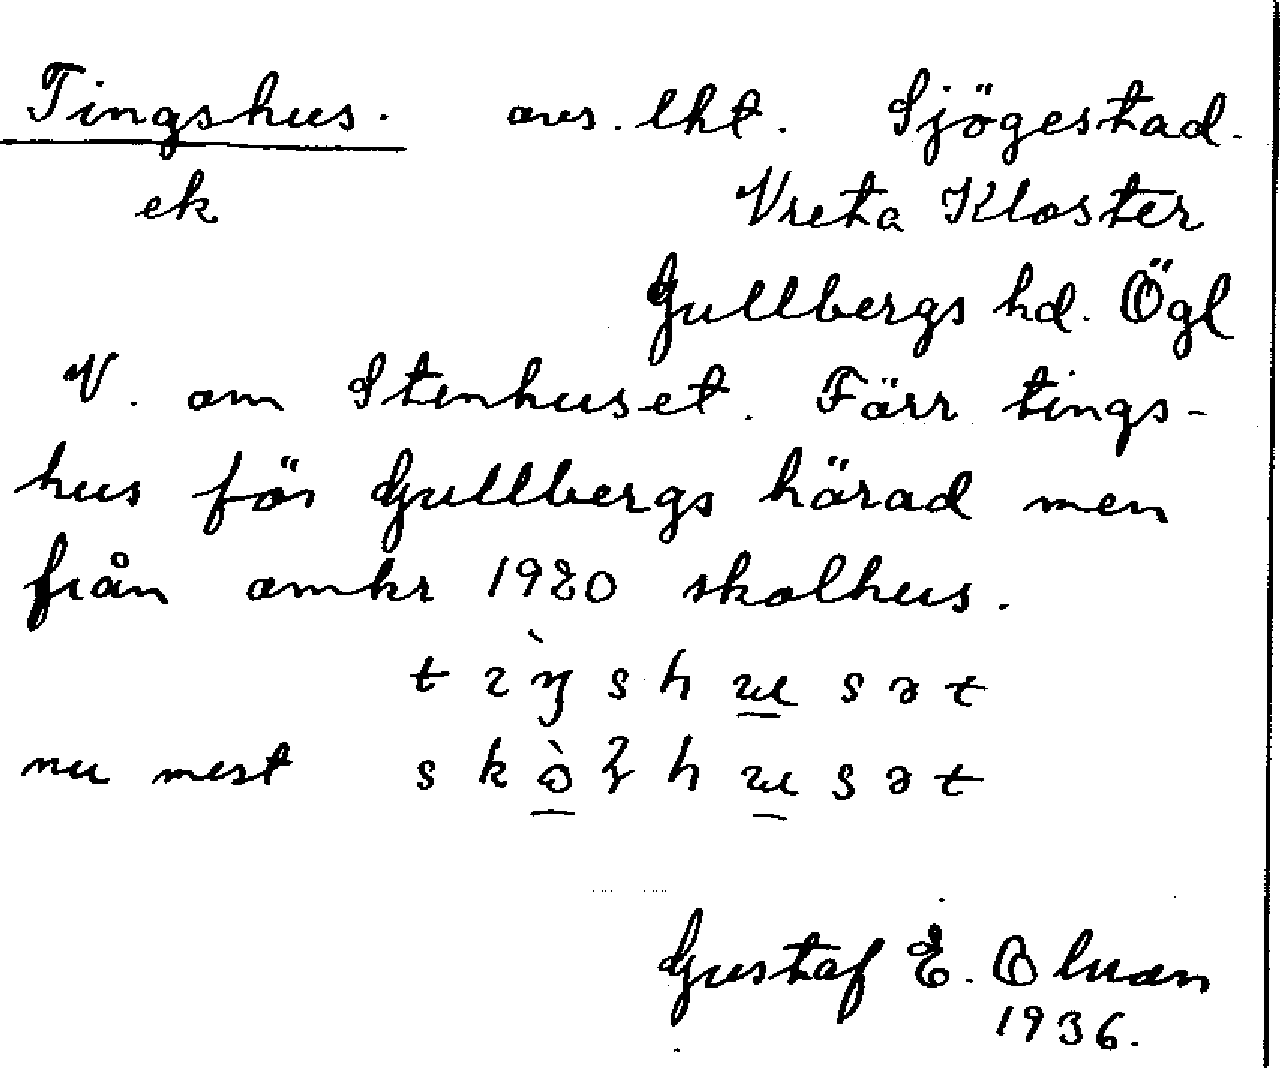 Tingshus. avs. lht. Sjögestad.
ek Vreta Kloster
Gullbergs hd. Ögl
V. om Stenhuset. Förr tings-
hus för Gullbergs härad men
från omkr 1920 skolhus.
tìŋshusət
nu mest skòlhusət
Gustaf E.
1936.